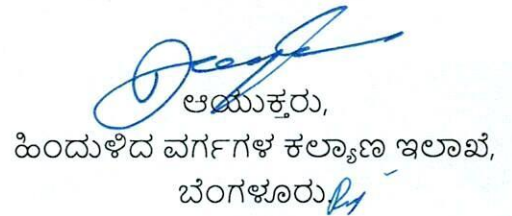 ಆಯುಕ್ತರು,
ಹಿಂದುಳಿದ ವರ್ಗಗಳ ಕಲ್ಯಾಣ ಇಲಾಖೆ,
ಬೆಂಗಳೂರು